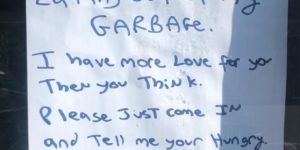 GARBAGE.
I have more Love for yo
Then you Think.
Please Just come In
and Tell me your Hungry.